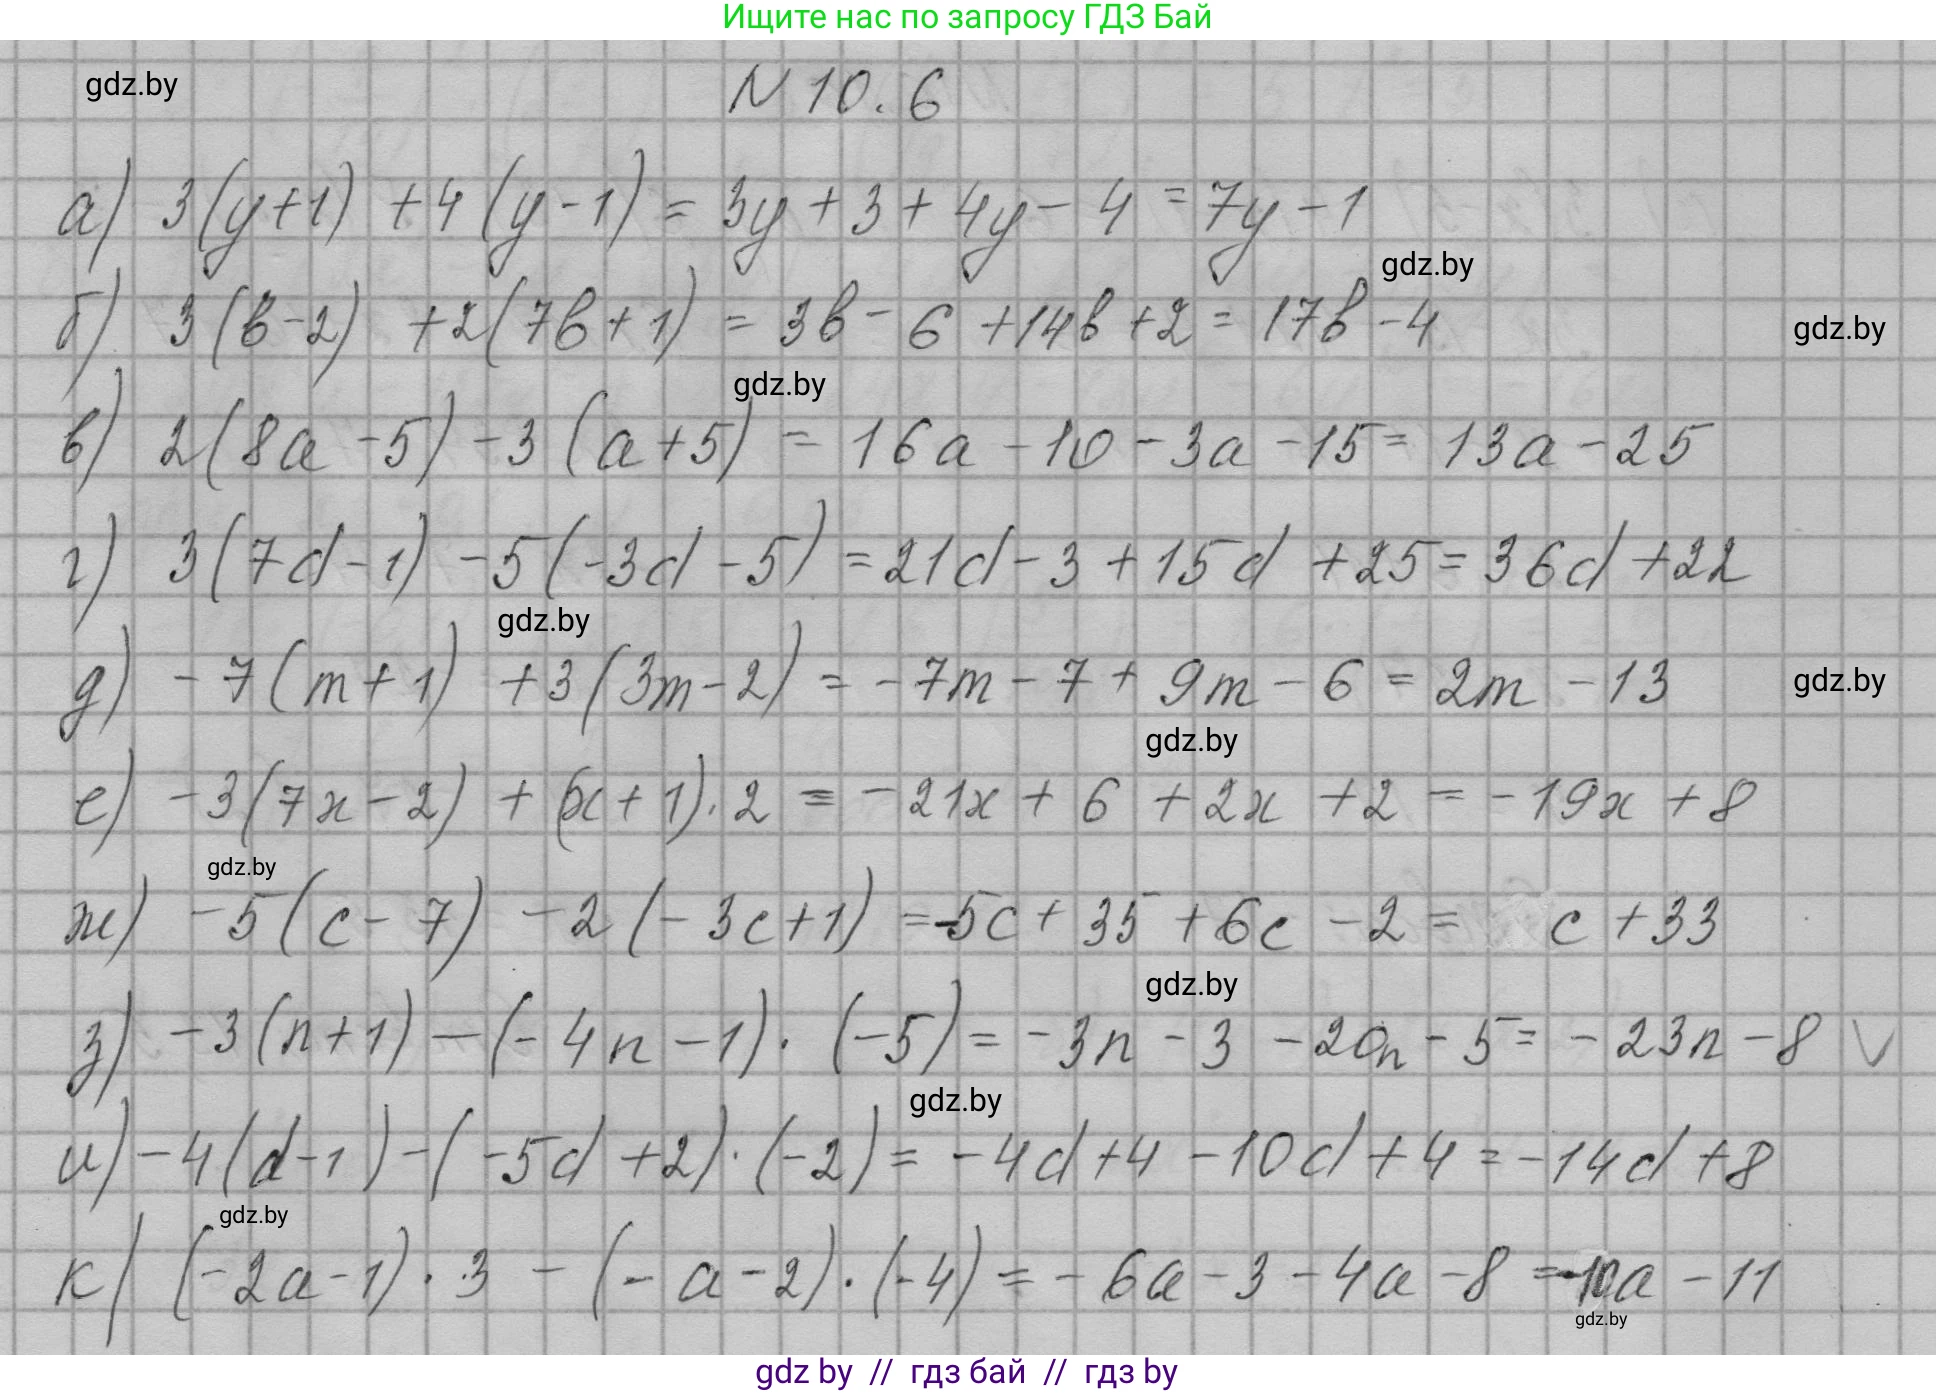 Ищите нас по запросу ГДЗ Бай
gdz.by
N 10.6
а) 3(y+1) +4(y-1) = 3y+3+4y-4 = 7y-1
gdz.by
б) 3(b-2) +2(7b+1) = 3b-6+14b+2 = 17b-4
gdz.by
gdz.by
в) 2(8a-5)-3(a+5) = 16a-10-3a-15 = 13a-25
г) 3(7d-1) -5(-3d-5) = 21d-3+15d+25 = 36d+22
gdz.by
д) -7(m+1) +3(3m-2) = -7m-7+9m-6 = 2m-13
gdz.by
gdz.by
е) -3(7x-2) + (x+1)·2 = -21x+6+2x+2 = -19x+8
gdz.by
ж) -5(c-7) -2(-3c+1) = -5c+35+6c-2 = c+33
gdz.by
з) -3(n+1) -(-4n-1)·(-5) = -3n-3-20n-5 = -23n-8 V
gdz.by
и) -4(d-1)-(-5d+2)·(-2) = -4d+4-10d+4 = -14d+8
gdz.by
к) (-2a-1)·3 -(-a-2)·(-4) = -6a-3-4a-8 = -10a-11
gdz.by
gdz by // гдз бай // гдз by